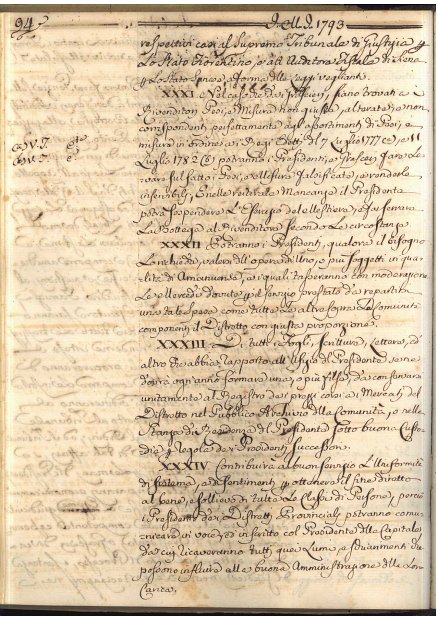 94 1793
respettivi casi al Supremo Tribunale di Giustizia p
Lo Stato Fiorentino, e all' Auditore Fiscale di Siena
p Lo Stato Senese a forma dlle Leggi veglianti.
XXXI Nel caso che da i Grascieri, siano trovati a
Rivenditori Pesi, e Misure non giuste, alterate, e non
corrispondenti perfettamente agl' aportimenti di Pesi, e
misure in ordine a i Regj Editti del 7 Luglio 1777 e 11
Luglio 1782 potranno i Presidenti, e Grascieri far Le-
vare sul fatto i Pesi, e Misure falsificate, e renderle
inservibili, e nelle reiterate Mancanze il Presidente
potrà sospendere L'Esercizio del Mestiere, e far serrare
La Bottega al Rivenditore secondo Le circostanze
XXXII Potranno i Presidenti, qualora il bisogno
Lo richieda, valersi dell' opera di Uno, o più Soggetti in qua-
lità di Amanuense, a i quali tasseranno con moderazione
Le Mercedi dovute p il servizio prestato da repartirsi
una tale spesa come tutte Le altre sopra Le Comunità
componenti il Distretto con giusta proporzione.
XXXIII Di tutti i Fogli, scritture, Lettere, ed
altro che abbia rapporto all' Ufizio del Presidente se ne
dovrà ogn' anno formare una, o più filze, da conservarsi
unitamente al Registro de i prezzi corsi a i Mercati del
Distretto nel Pubblico Archivio dlla Comunità, o nella
Stanza di Residenza del Presidente sotto buona Custo-
dia p regola de i Presidenti successori.
XXXIV Contribuirà al buon servizio L'Uniformità
di sistema, e di sentimenti p ottenere il fine diretto
al bene, e sollievo di tutte Le Classi di Persone, perciò
i Presidenti de i Distretti Provinciali potranno comu-
nicare in voce, ed in scritto col Presidente dlla Capitale
da cui riceveranno tutti quei Lumi, e schiarimenti che
possono influire alla buona Amministrazione dlla Loro
Carica.